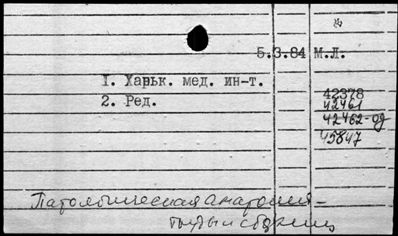 5.3.84 М.Л.
1. Харьк. мед. ин-т.
2. Ред.
42378
42461
42462-од
45847
Патологическая анатомия -
труды и сборники